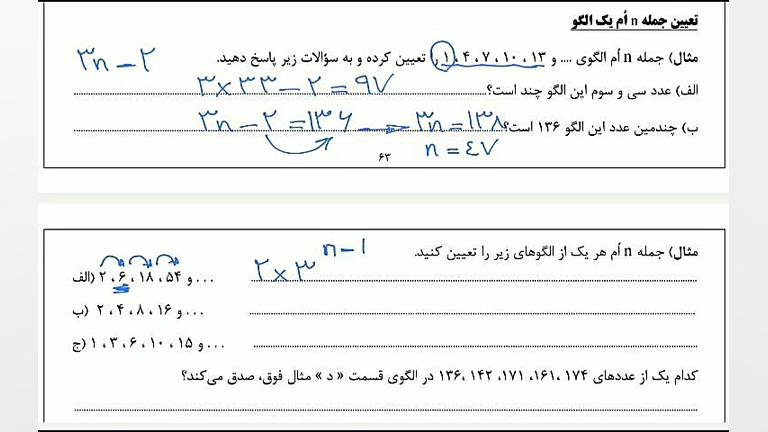 تعیین جمله n اُم یک الگو
مثال) جمله n اُم الگوی .... و ۱۳ ، ۱۰ ، ۷ ، ۴ ، ۱ را تعیین کرده و به سؤالات زیر پاسخ دهید.
۳n – ۲
الف) عدد سی و سوم این الگو چند است؟ ۳ × ۳۳ – ۲ = ۹۷
ب) چندمین عدد این الگو ۱۳۶ است؟ ۳n – ۲ = ۱۳۶ → ۳n = ۱۳۸
n = ٤٧
۶۳
مثال) جمله n اُم هر یک از الگوهای زیر را تعیین کنید.
الف) ۲ ، ۶ ، ۱۸ ، ۵۴ و ... ۲ × ۳ n – ۱
ب) ۲ ، ۴ ، ۸ ، ۱۶ و ...
ج) ۱ ، ۳ ، ۶ ، ۱۰ ، ۱۵ و ...
کدام یک از عددهای ۱۷۴ ،۱۶۱ ،۱۷۱ ،۱۴۲ ،۱۳۶ در الگوی قسمت « د » مثال فوق، صدق می‌کند؟